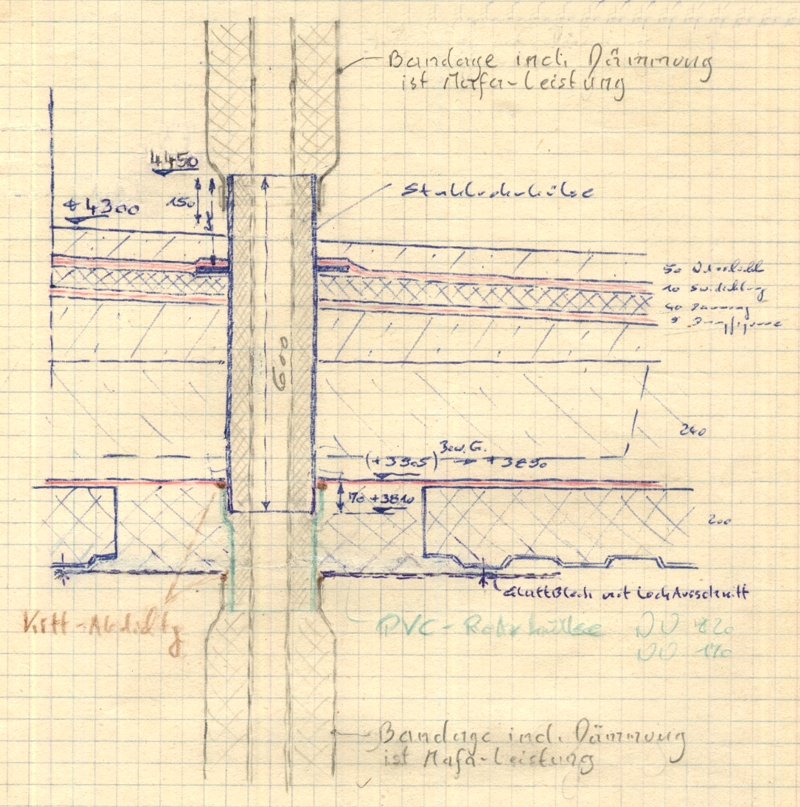 Bandage incl. Dämmung
ist Mafa-Leistung
4450
+4300
150
Stahlrohrhülse
50
10
40 Dämmung
600
240
Bew. G.
(+3905) → +3890
70 +3810
200
Glattblech mit Lochausschnitt
Kitt-Abdichtg
PVC-Rohrhülse DU 120
DU 110
Bandage incl. Dämmung
ist Mafa-Leistung